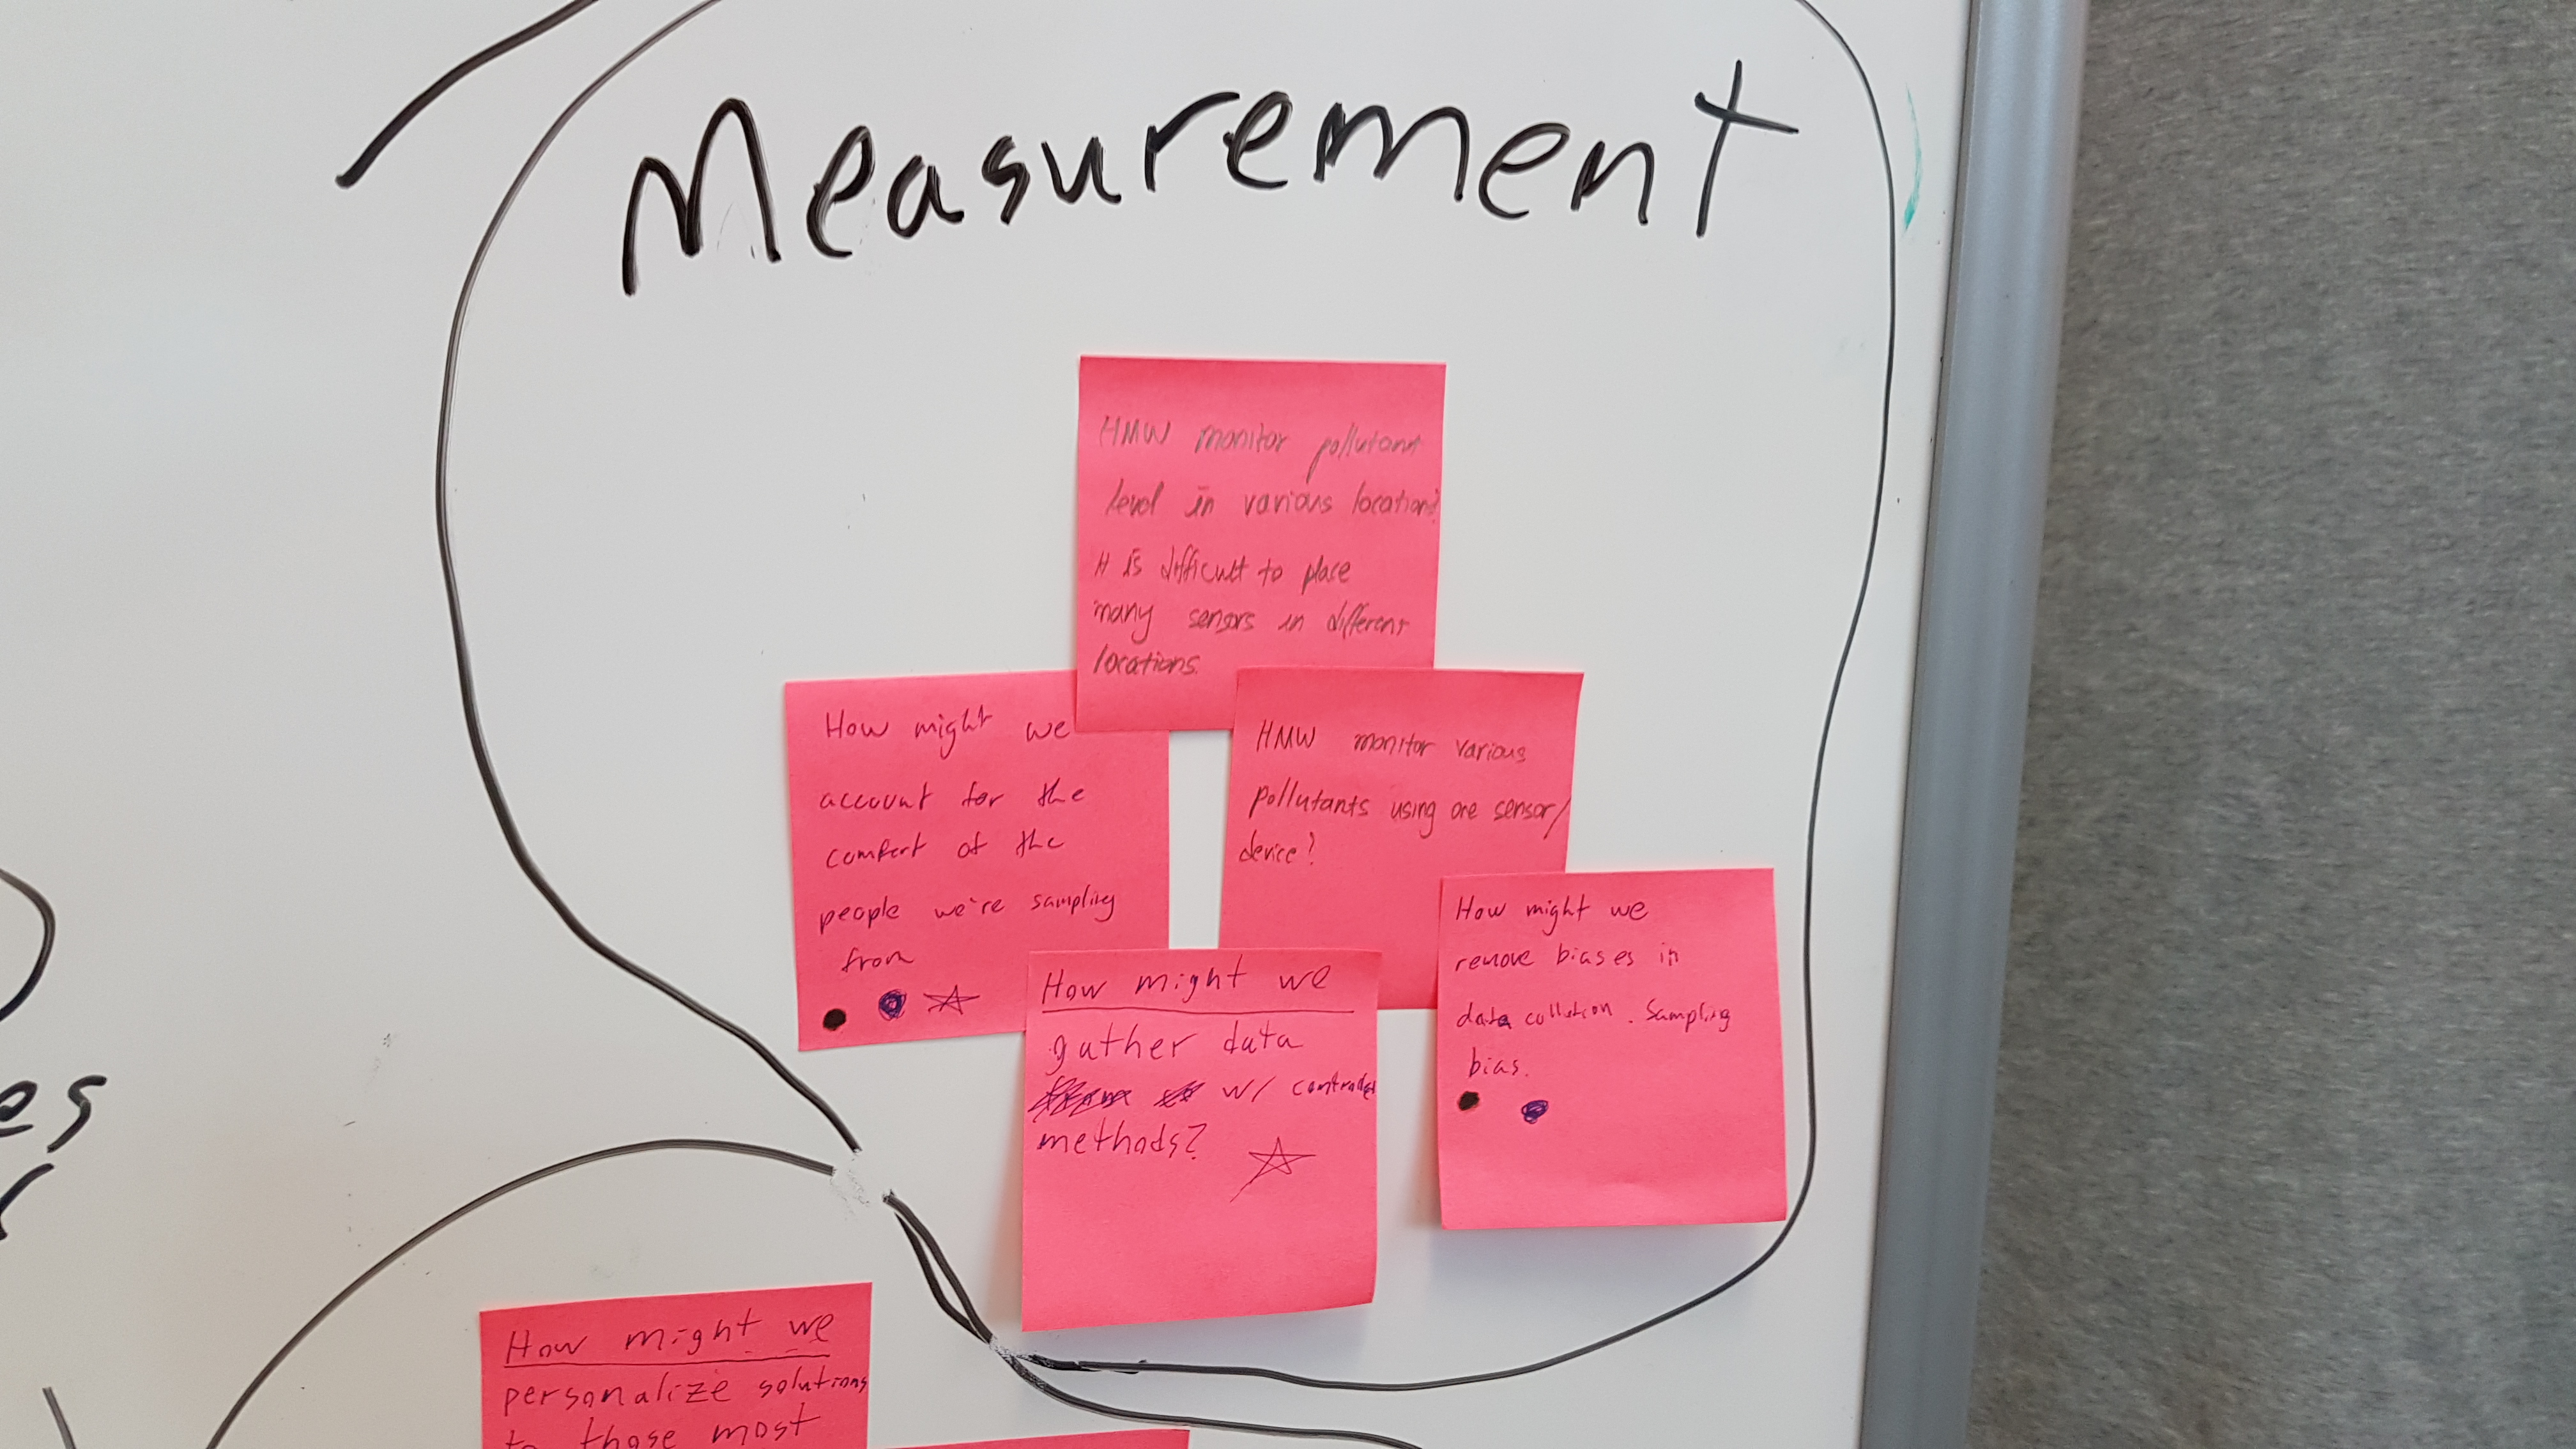 Measurement
HMW monitor pollutant
level in various locations?
It is difficult to place
many sensors in different
locations.
How might we
account for the
comfort of the
people we're sampling
from
HMW monitor various
pollutants using one sensor/
device?
How might we
remove biases in
data collution. Sampling
bias.
How might we
gather data
w/ controlled
methods?
es
How might we
personalize solutions
to those most